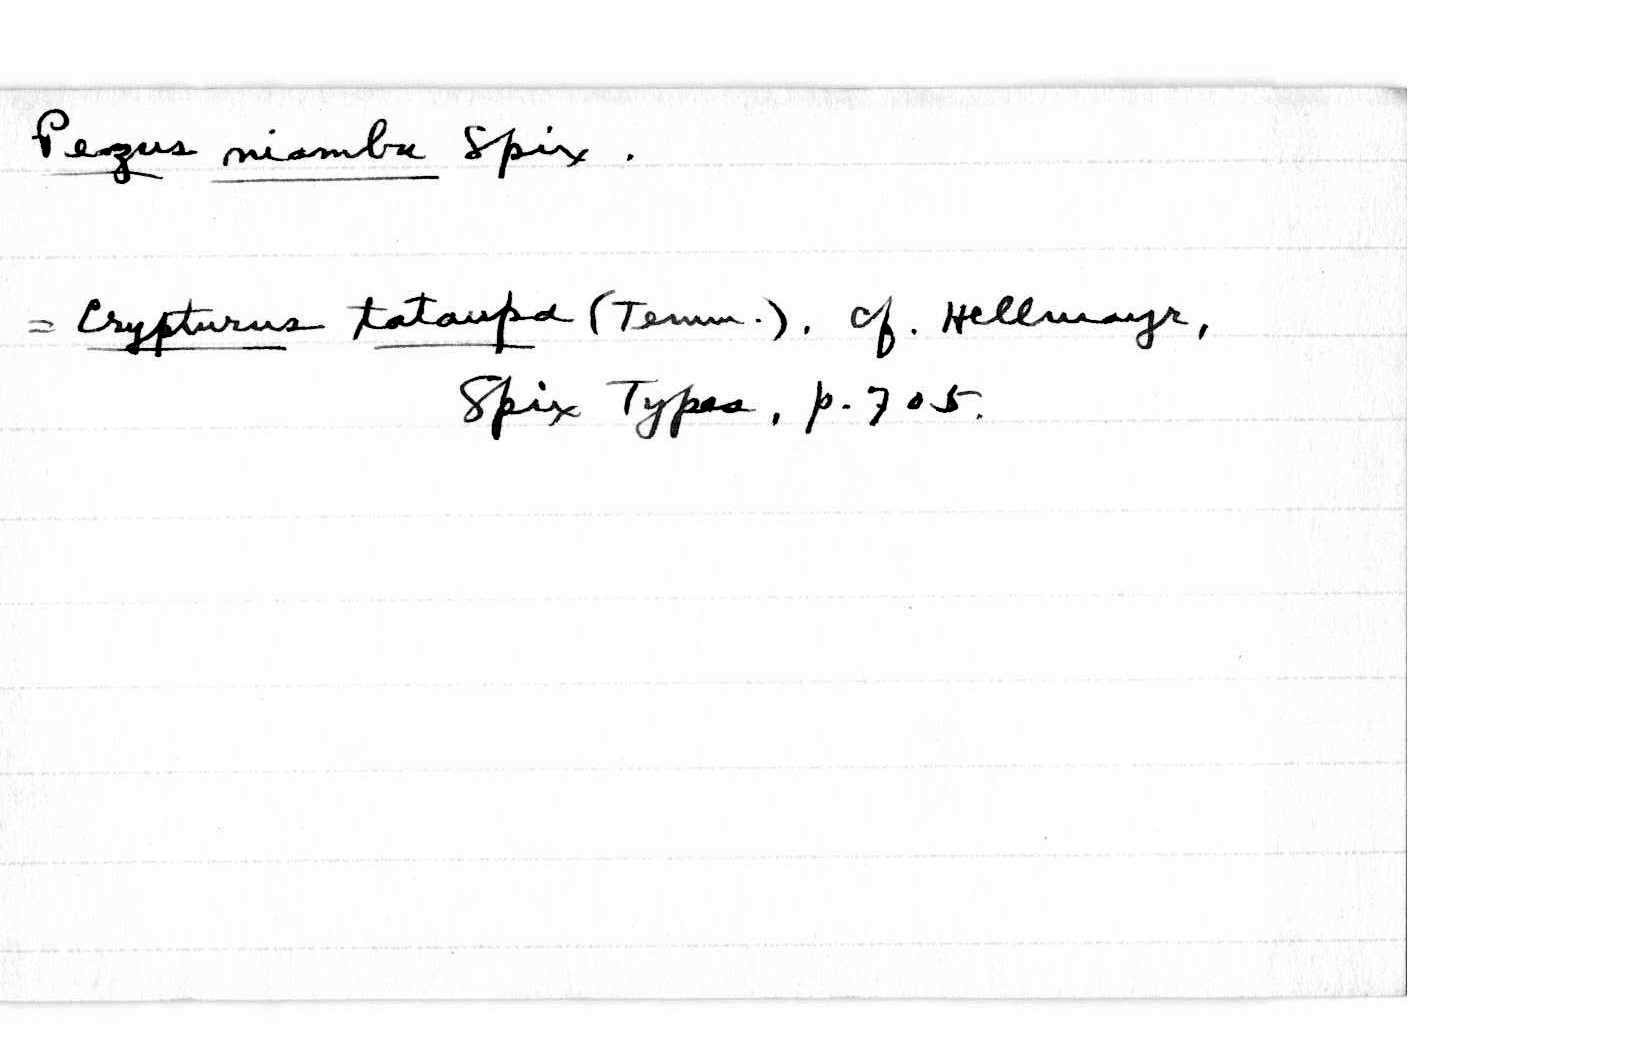 Pezus niambu Spix.
= Crypturus tataupa (Temm.). cf. Hellmayr,
Spix Types, p. 705.